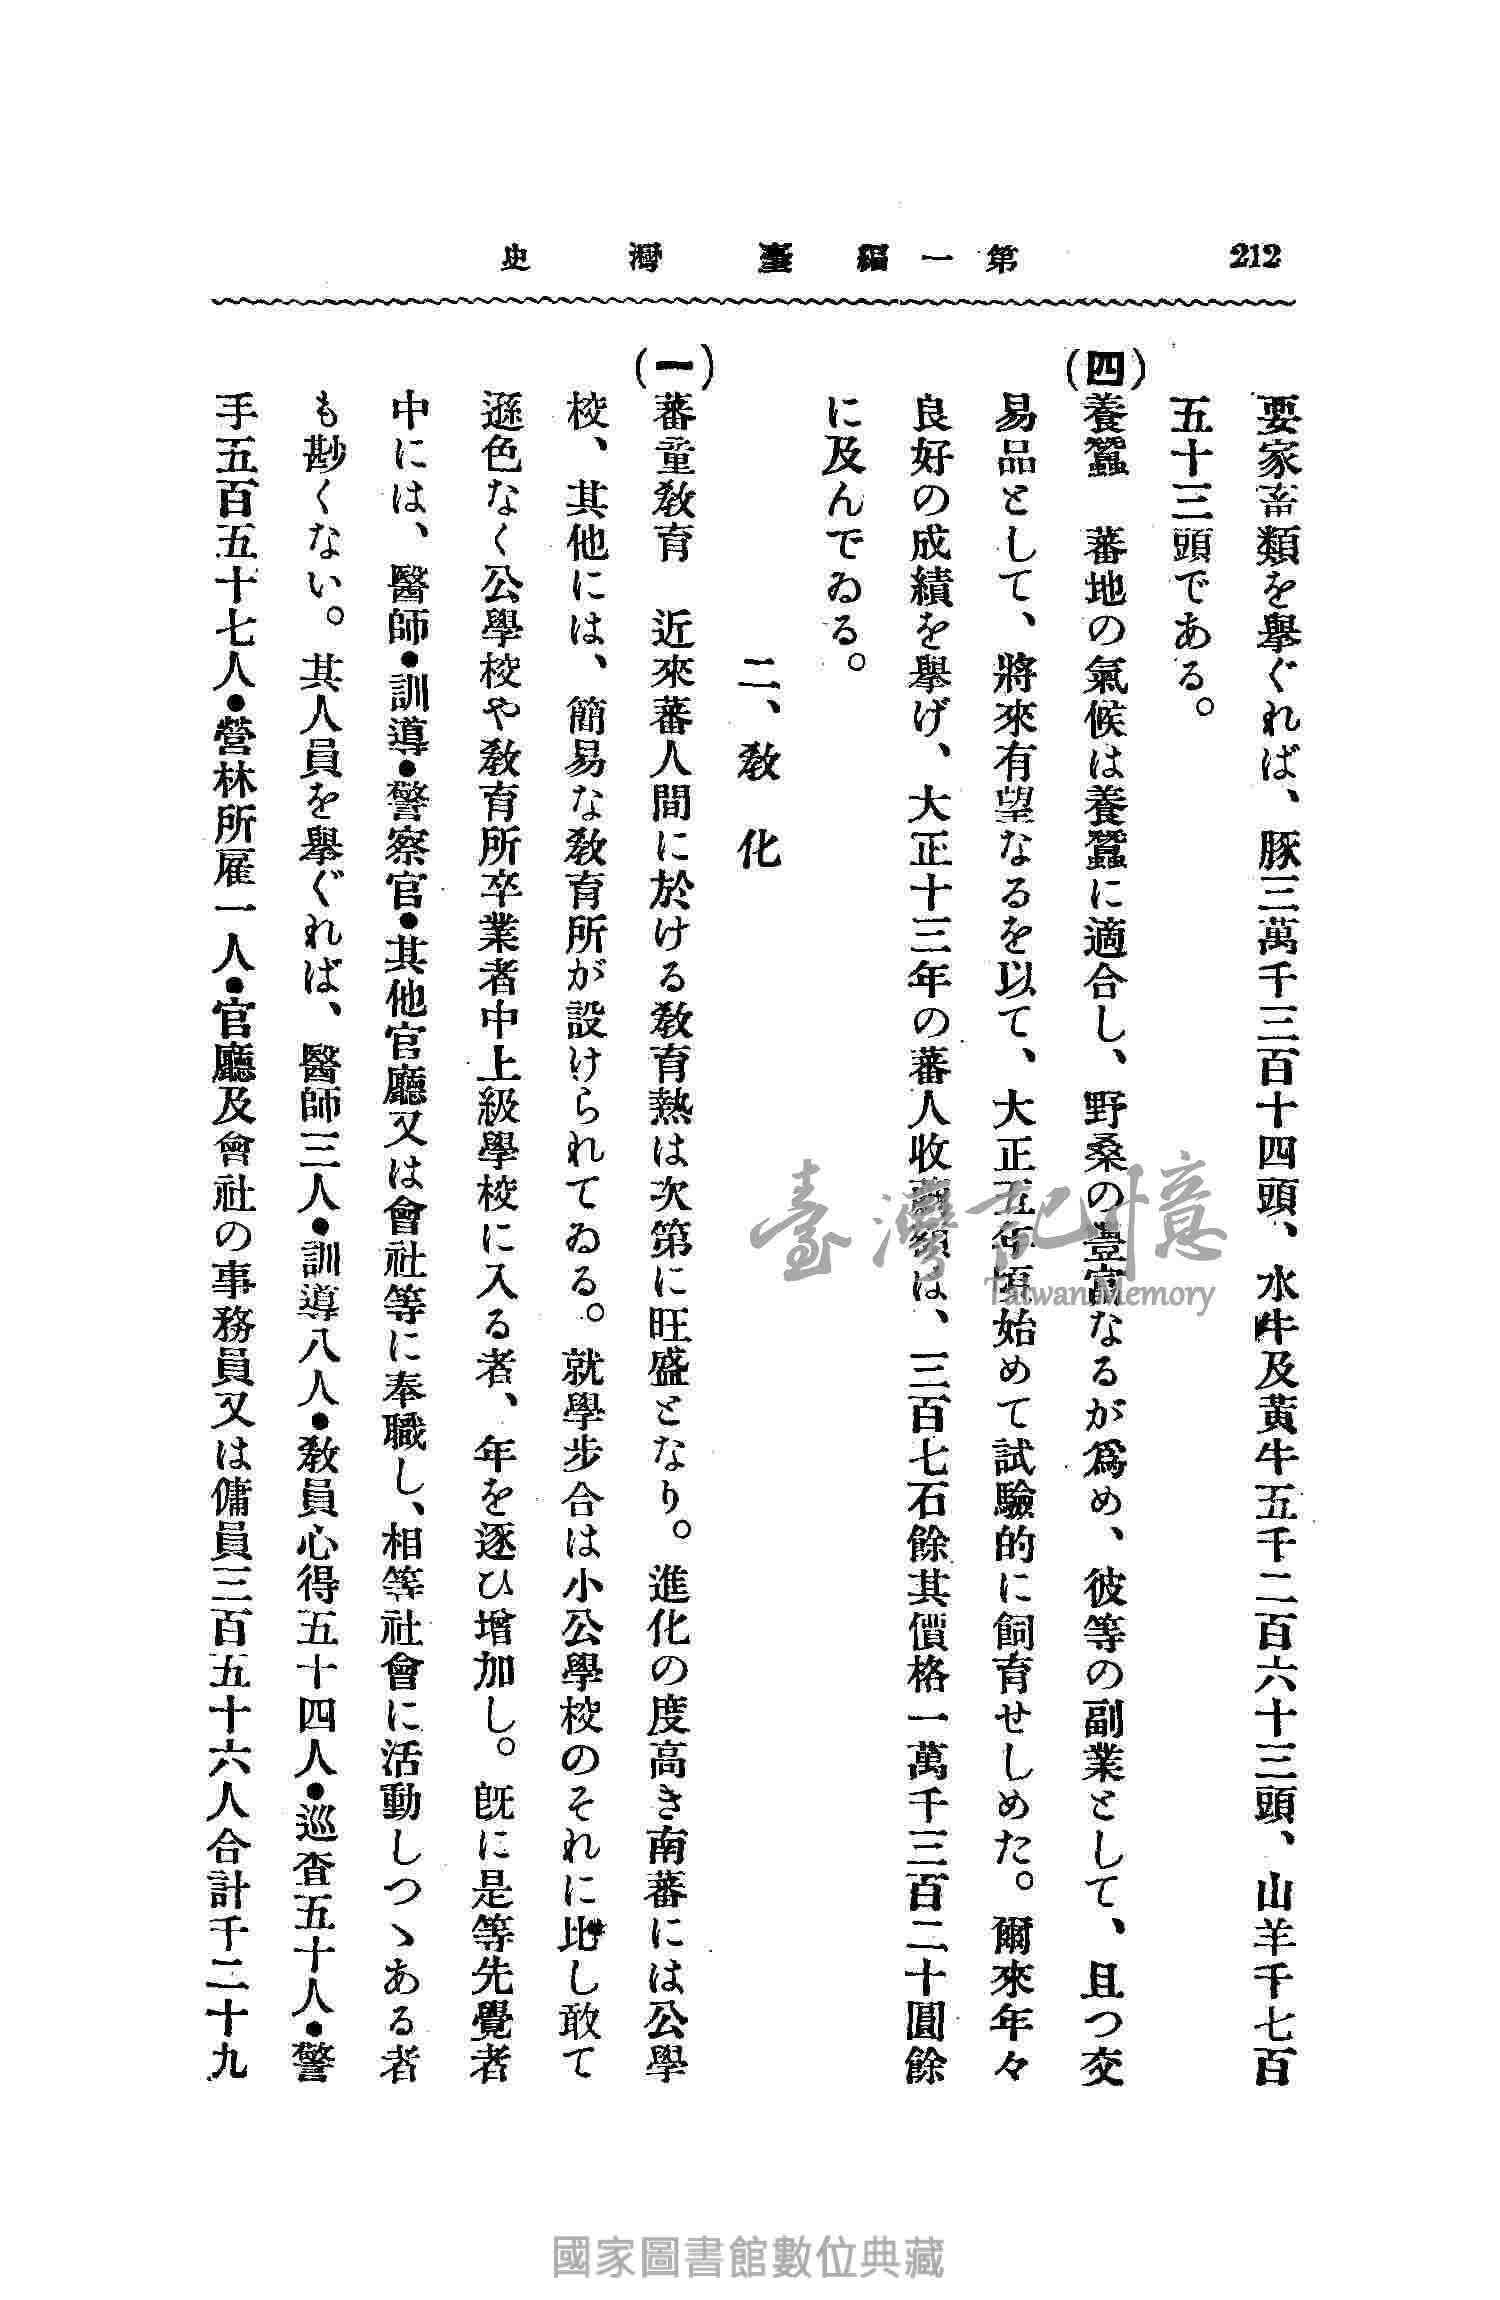 212
第一編 臺灣史
要家畜類を擧ぐれば、豚三萬千三百十四頭、水牛及黃牛五千二百六十三頭、山羊千七百
五十三頭である。
(四)養蠶 蕃地の氣候は養蠶に適合し、野桑の豊富なるが爲め、彼等の副業として、且つ交
易品として、將來有望なるを以て、大正五年頃始めて試驗的に飼育せしめた。爾來年々
良好の成績を擧げ、大正十三年の蕃人收繭額は、三百七石餘其價格一萬千三百二十圓餘
に及んでゐる。
二、敎化
(一)蕃童敎育 近來蕃人間に於ける敎育熱は次第に旺盛となり。進化の度高き南蕃には公學
校、其他には、簡易な敎育所が設けられてゐる。就學步合は小公學校のそれに比し敢て
遜色なく公學校や敎育所卒業者中上級學校に入る者、年を逐ひ增加し。旣に是等先覺者
中には、醫師•訓導•警察官•其他官廳又は會社等に奉職し、相等社會に活動しつゝある者
も尠くない。其人員を擧ぐれば、醫師三人•訓導八人•敎員心得五十四人•巡査五十人•警
手五百五十七人•營林所雇一人•官廳及會社の事務員又は傭員三百五十六人合計千二十九
臺灣記憶
Taiwan Memory
國家圖書館數位典藏